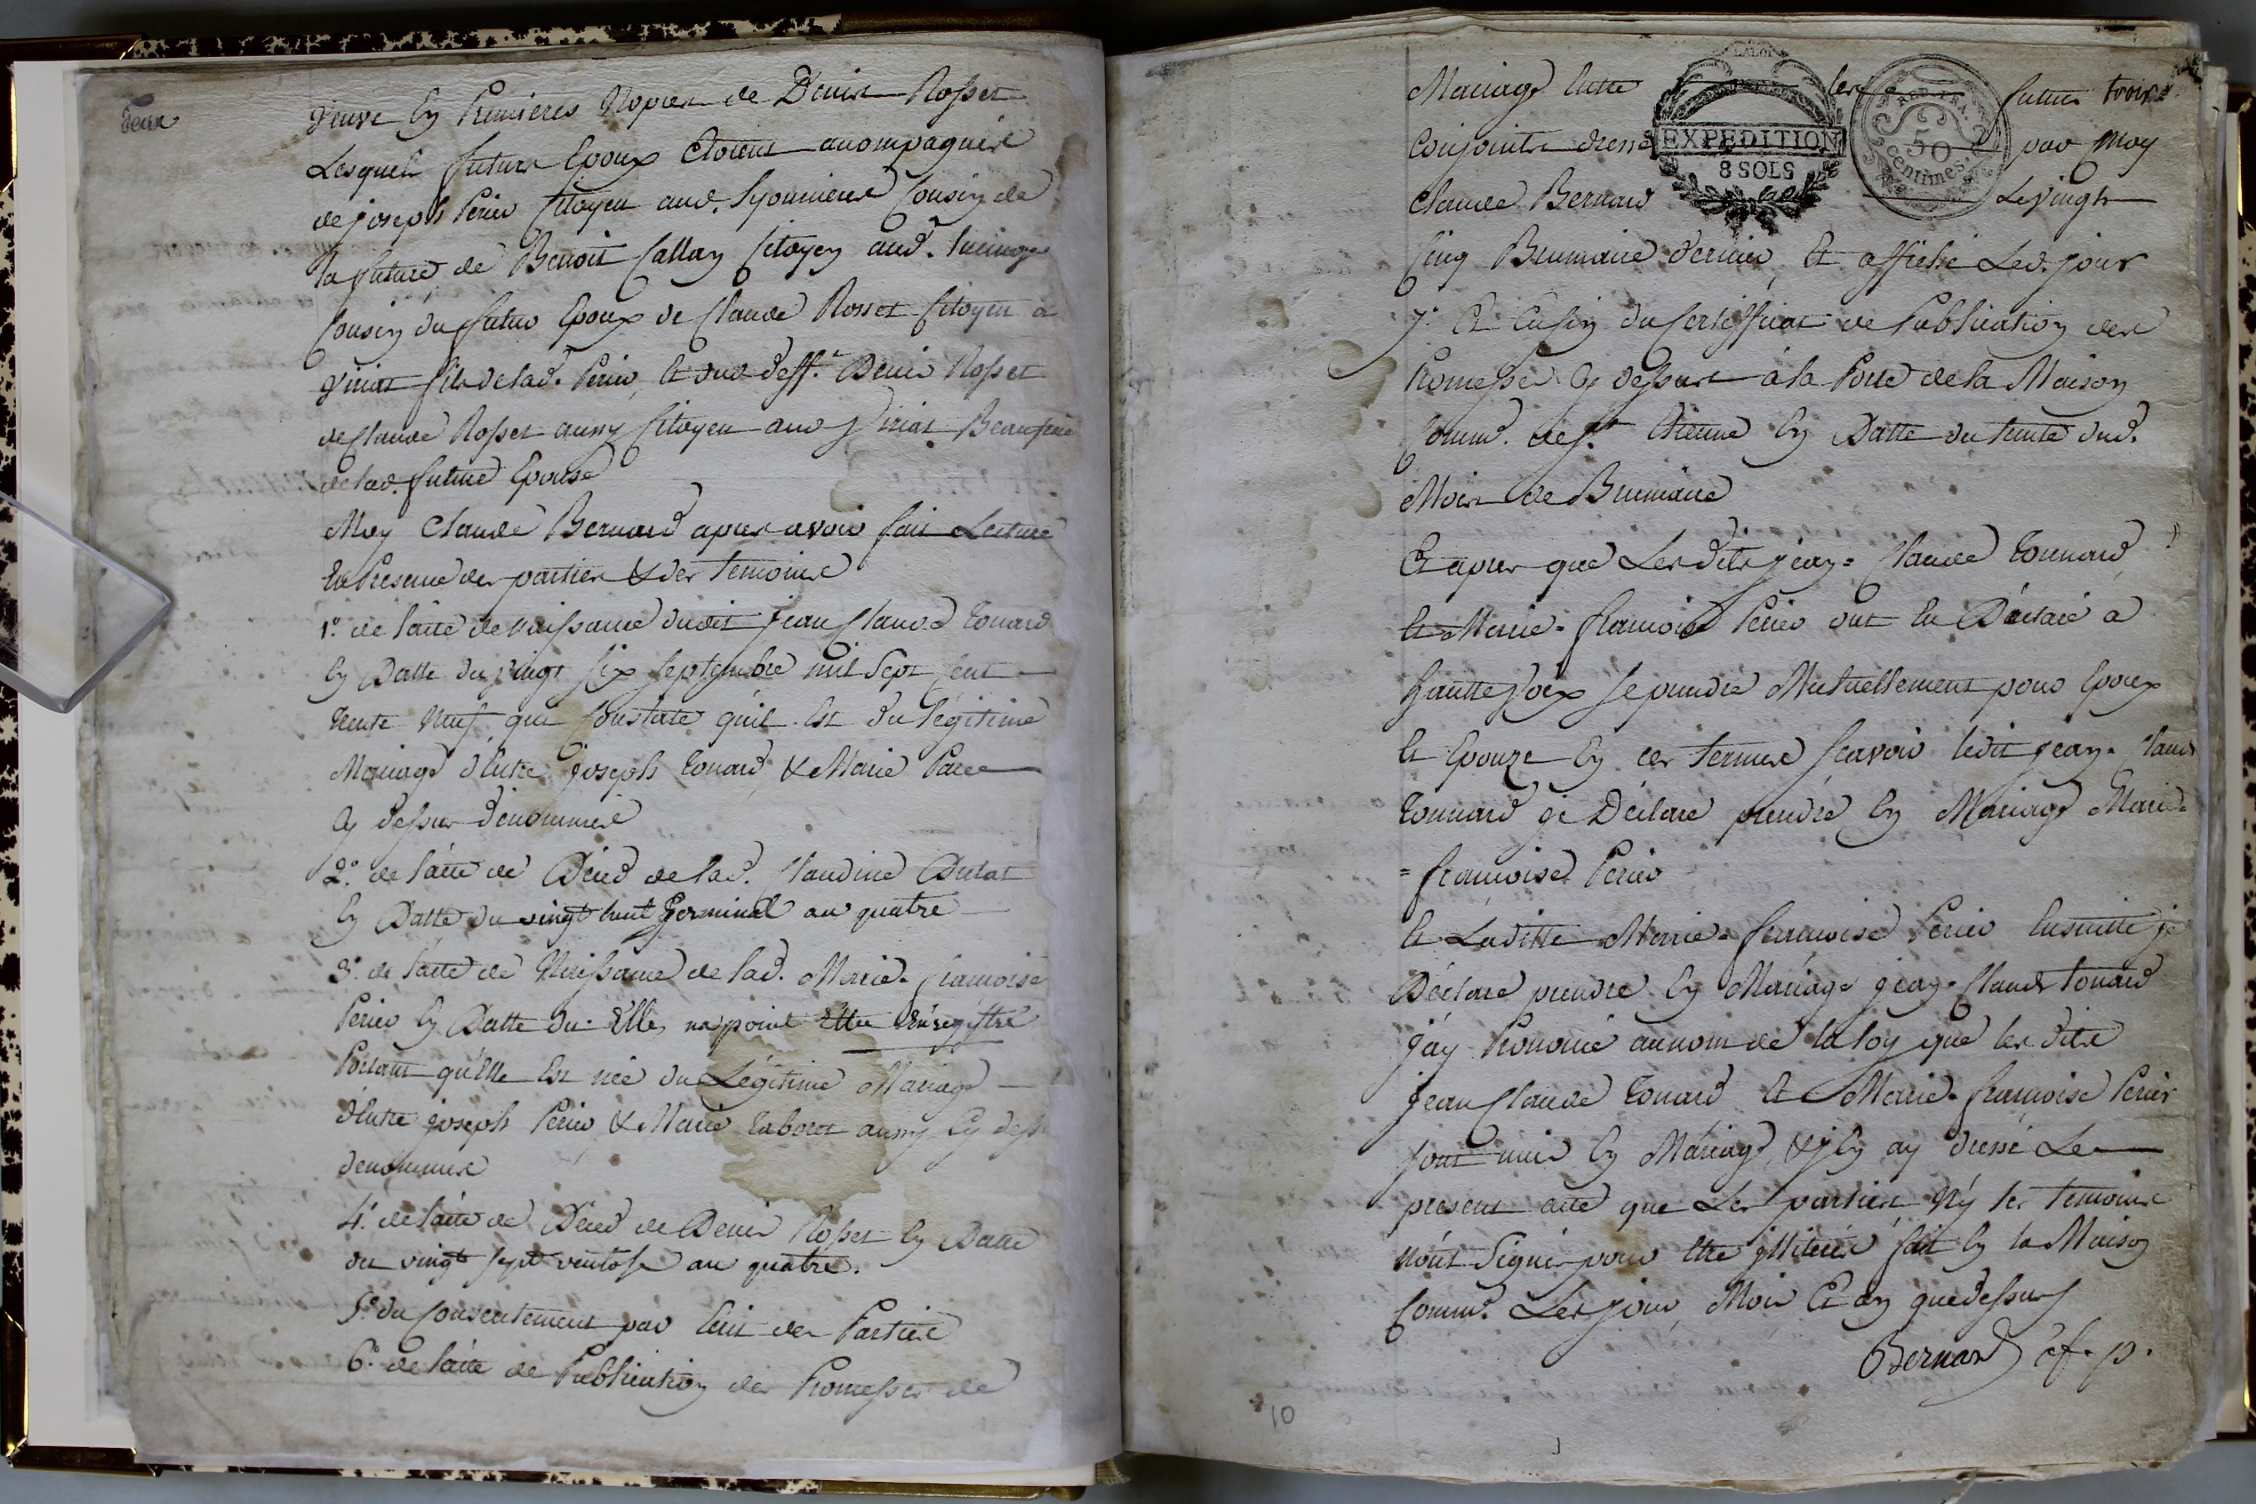 deux
veuve En Premieres Nopces de Denis Rosset
Lesquels futurs Epoux Etoient accompagnés
de joseph Perier Citoyen aud. Cousin de
la future, de Benoit Callay Citoyen aud.
Cousin du futur Epoux de Claude Rosset Citoyen à
viriat fils de lad. Perier, Et dud. deff.t Denis Rosset
de Claude Rosset aussy Citoyen aud viriat Beaufrere
de lad. future Epouse
Moy Claude Bernard apres avoir fait Lecture
En Presence des parties & des temoins
1.° de l'acte de naissance dudit jean Claude Tonard
En Datte du vingt six septembre mil Sept Cent
trente Neuf, qui Constate qu'il Est du légitime
Mariage d'Entre joseph Tonard, & Marie
Cy dessus dénommés
2.° de l'acte de Décés de lad. Claudine
En Datte du vingt huit Germinal an quatre
3.° de l'acte de Naissance de lad. Marie-françoise
Perier En Datte du Elle na point Ettee Enregistré
Portant qu'Elle Est née du Légitime Mariage
d'Entre joseph Perier & Marie aussy Cy dess
denommés
4.° de l'acte de Décés de Denis Rosset En Datte
du vingt sept ventose an quatre.
5.° du Consentement par Ecrit des Parties
6.° de l'acte de Publication des Promesses de
Mariage Entre les futurs trois
Conjoints dressé par Moy
EXPEDITION
8 SOLS
50
centimes
Claude Bernard Le vingt
Cinq Brumaire dernier, Et affiché Led. jour
7.° Et Enfin du Certifficat de Publication des
Promesses Cy dessus à la Porte de la Maison
Comm.e de S.t Etienne En Datte du trente dud.
Mois de Brumaire
Et apres que Lesdits jean-Claude Tonnard
Et Marie-françoise Perier ont Eu Déclaré à
hautte voix se prendre Mutuellement pour Epoux
Et Epouze En ces termes scavoir ledit jean-Claude
Tonnard je Déclare prendre En Mariage Marie-
=françoise Perier
Et Laditte Marie-françoise Perier Ensuitte je
Déclare prendre En Mariage jean-Claude Tonard
j'ay Prononcé au nom de la loy que les dits
jean Claude Tonard Et Marie-françoise Perier
sont unis En Mariage, & j'En ay dressé Le
présent acte que Les parties N'y les temoins
n'ont Signé pour Etre illiterés fait En la Maison
Comm.e Les jour, Mois Et an que dessus
Bernard of. p.
10